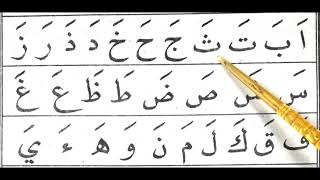 اَ بَ تَ ثَ جَ حَ خَ دَ ذَ رَ زَ
سَ شَ صَ ضَ طَ ظَ عَ غَ
فَ قَ كَ لَ مَ نَ وَ هَ ءَ يَ